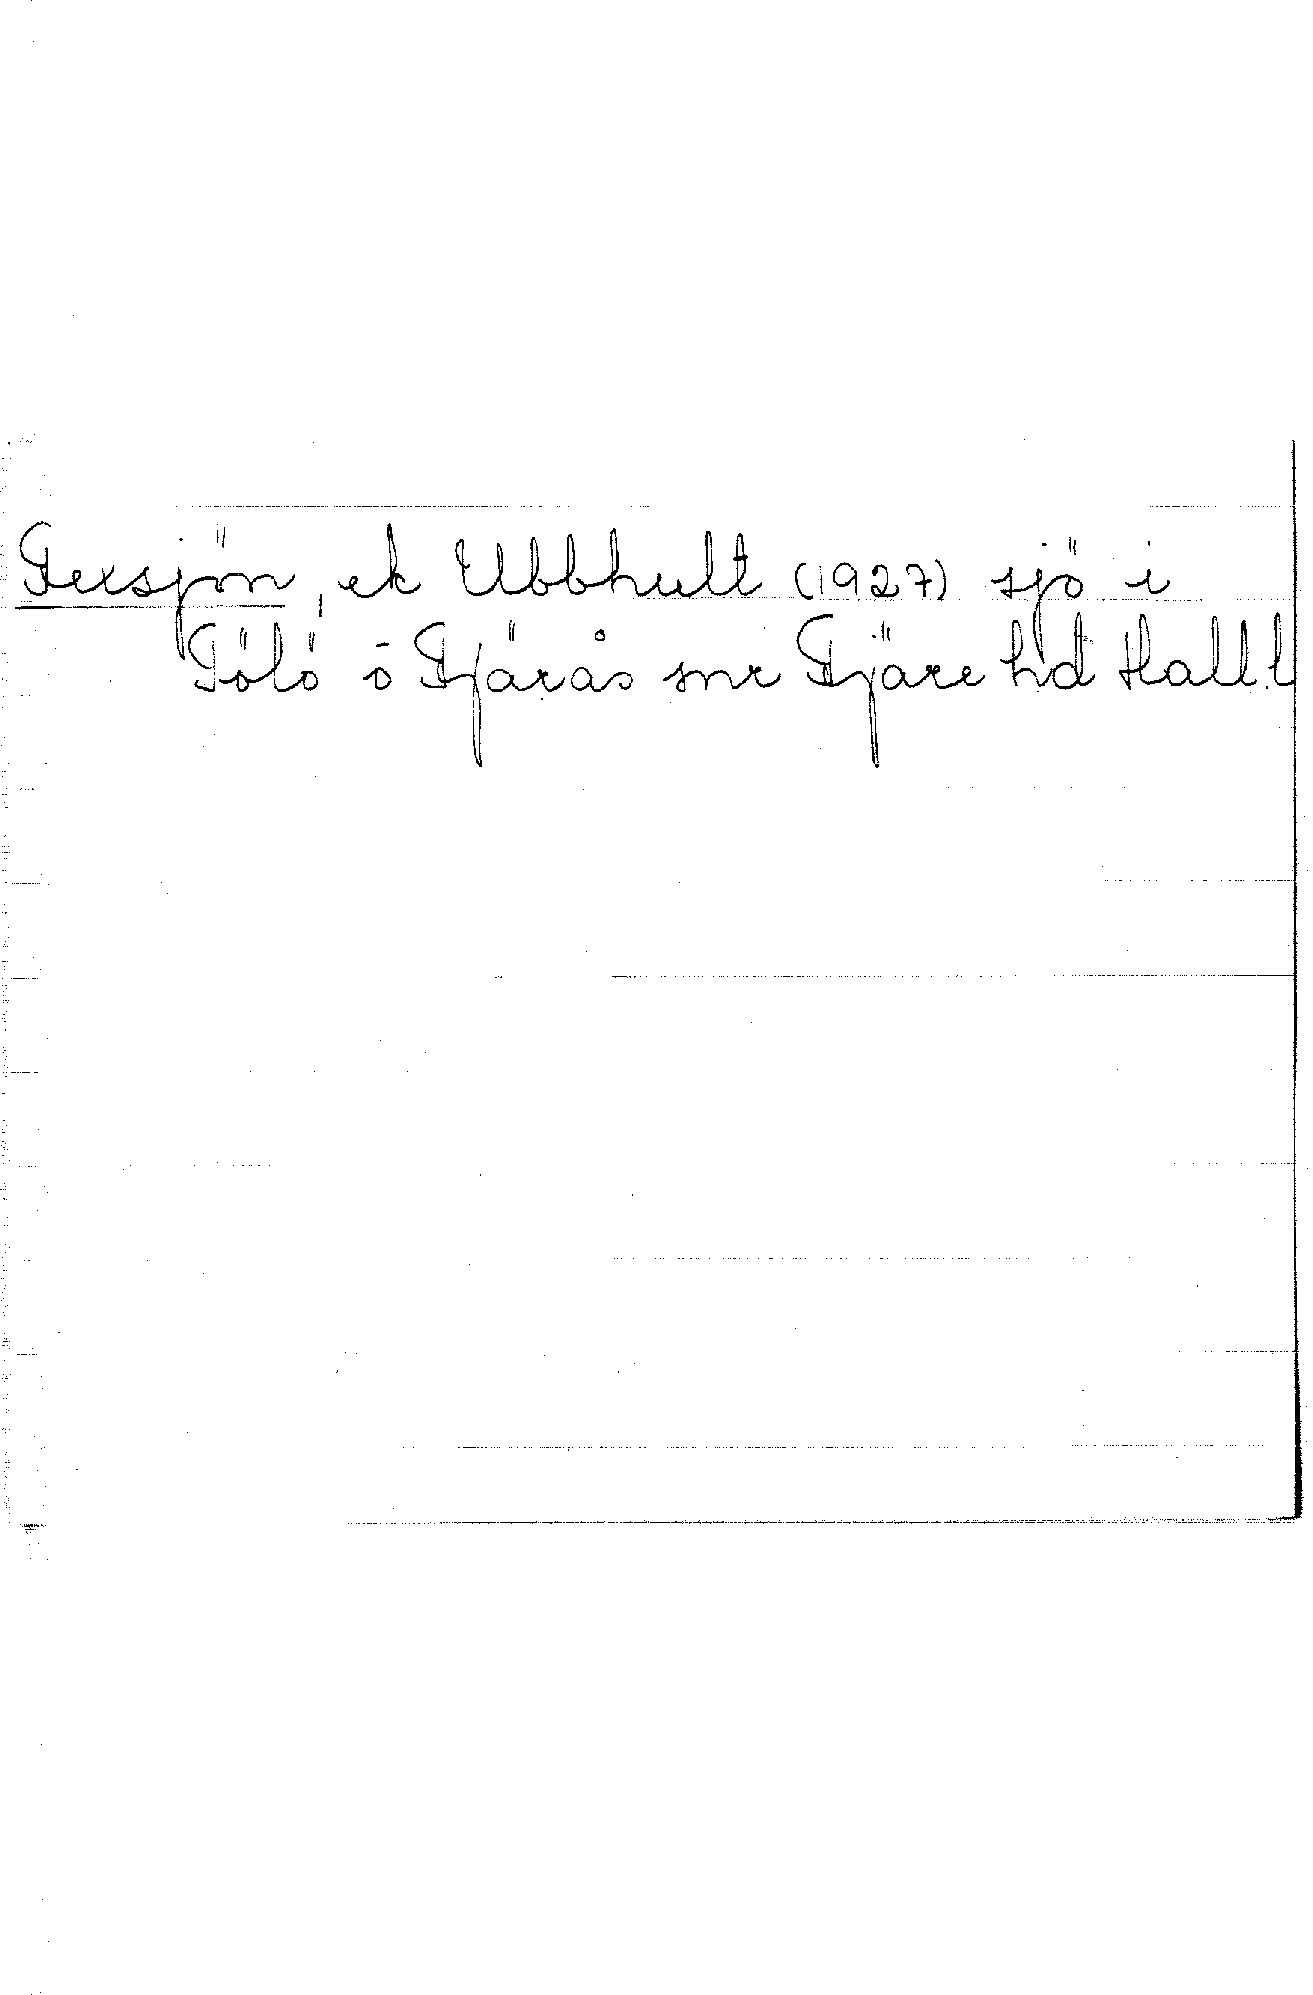 Texsjön, ek Ubbhult (1927) sjö i
Tölö o Fjärås snr Fjäre hd Hall l